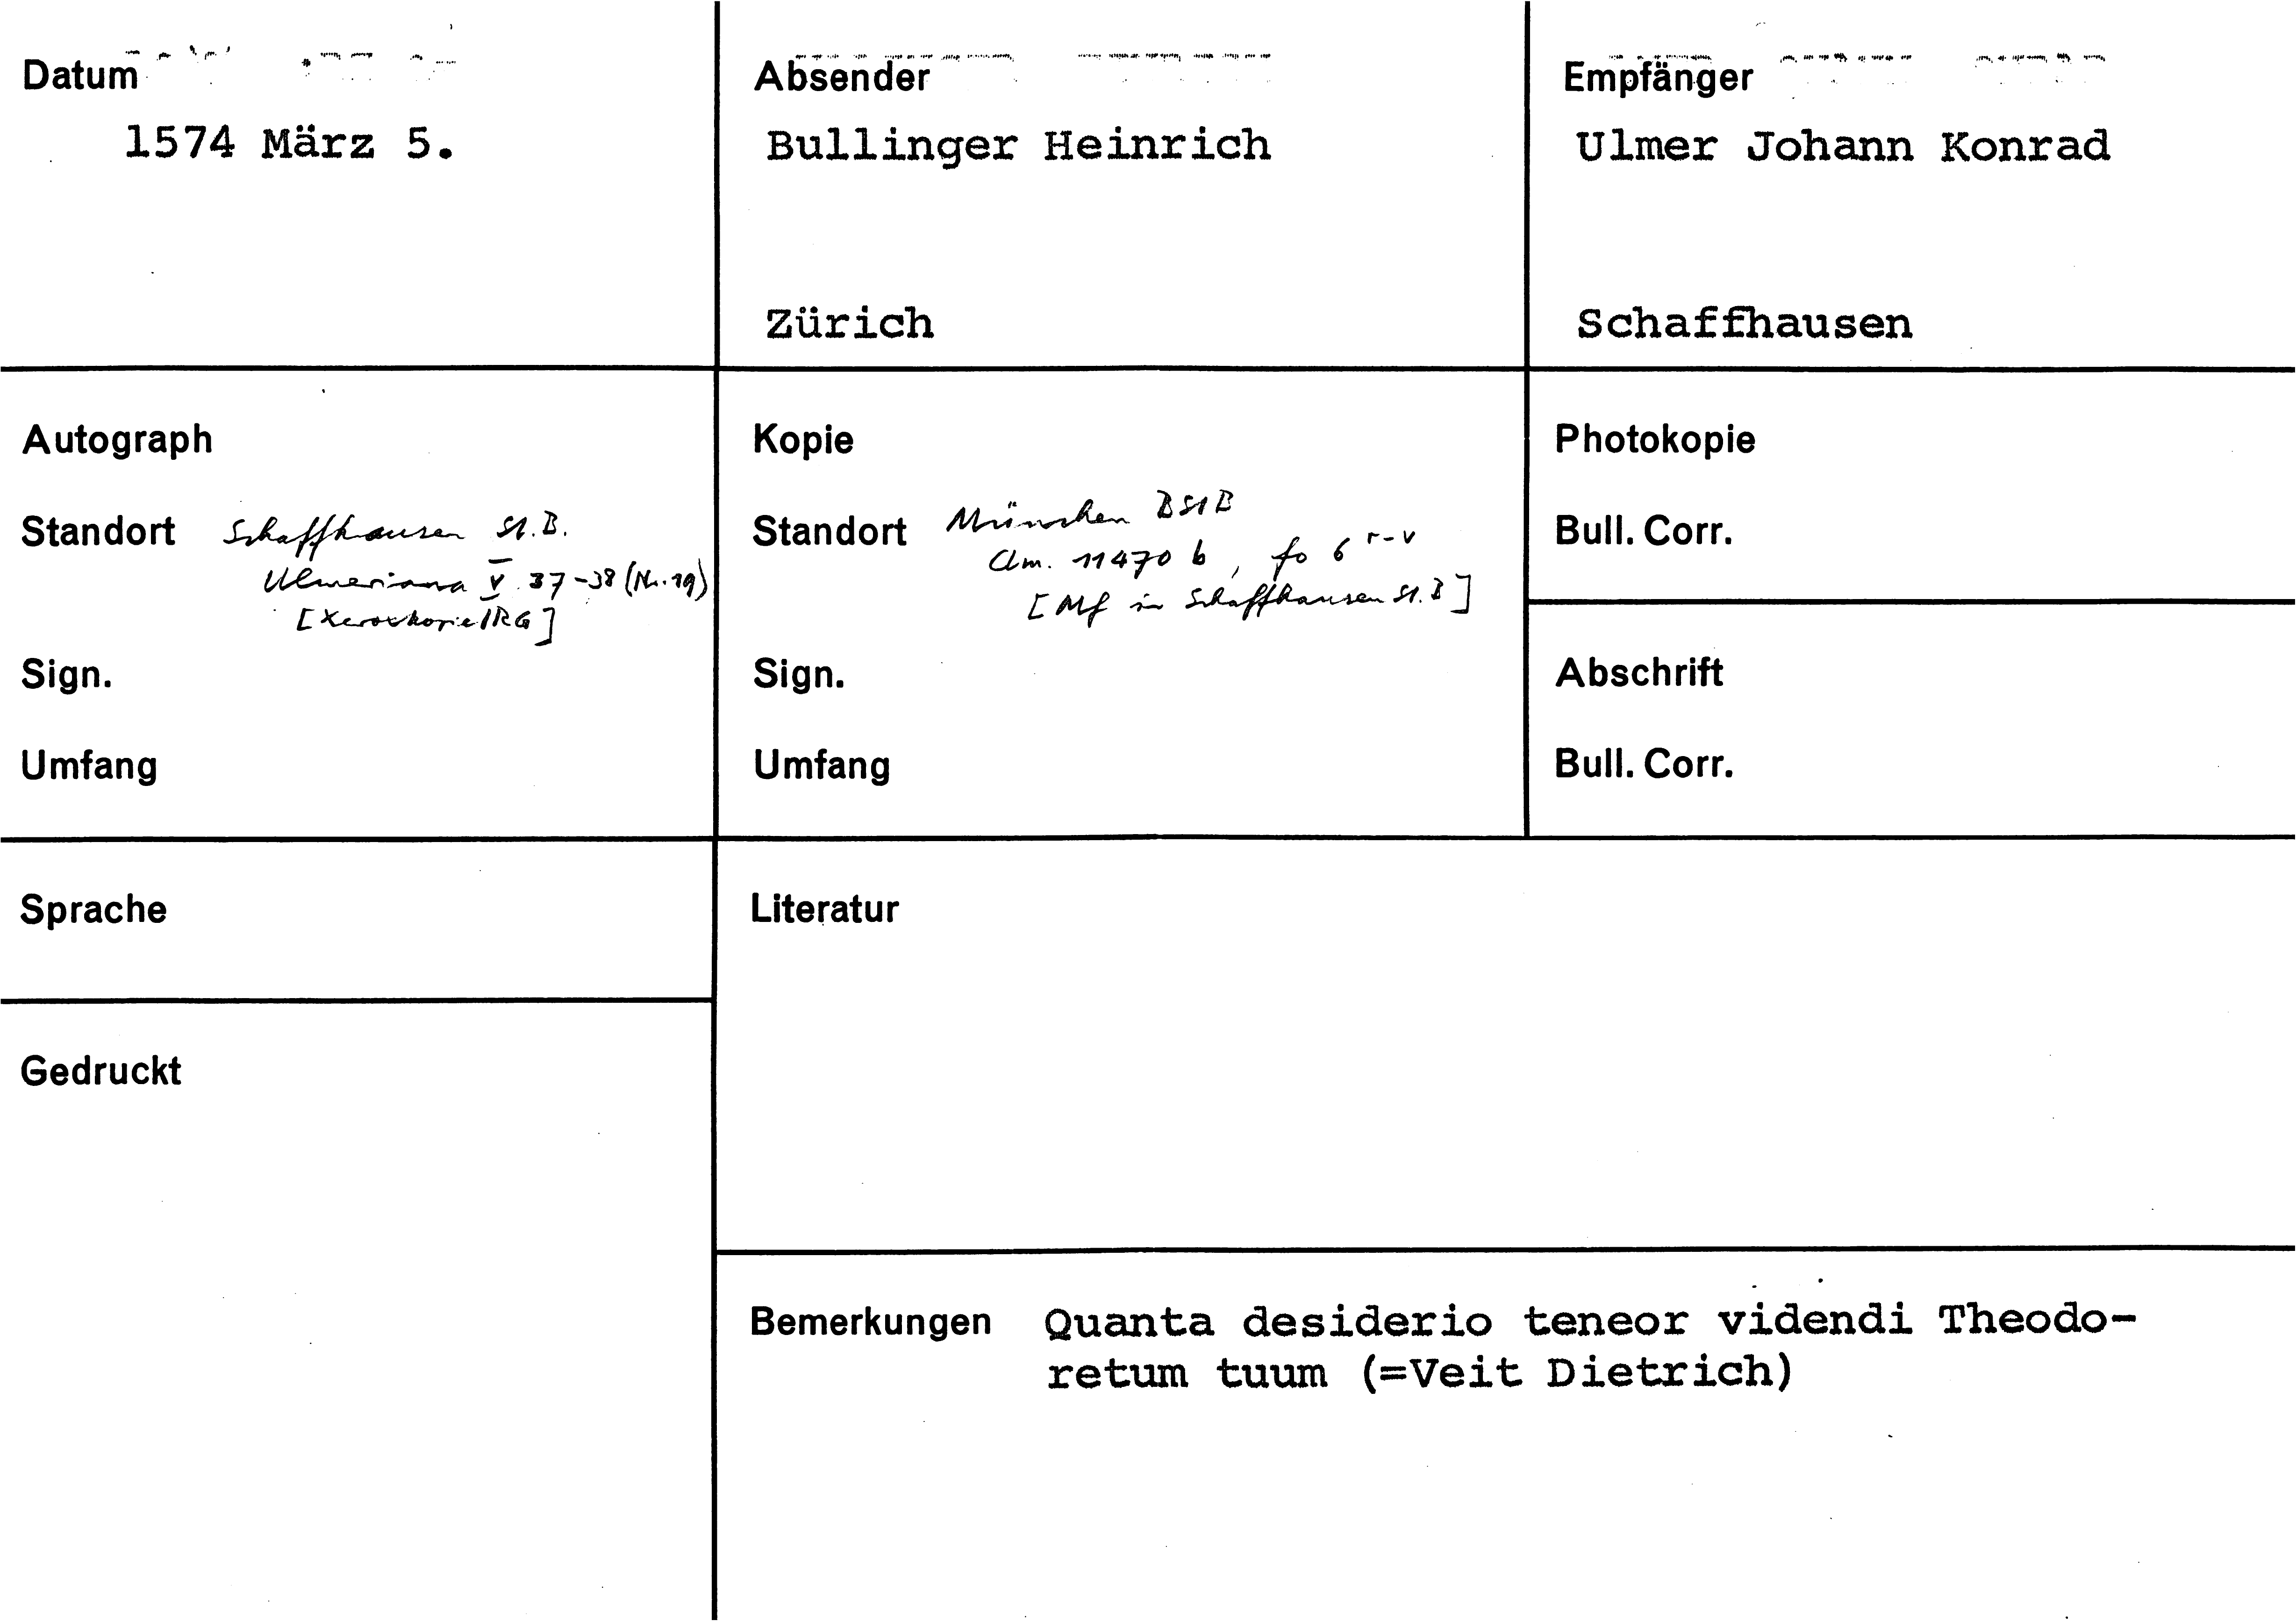 Datum
1574 März 5.
Absender
Bullinger Heinrich
Zürich
Empfänger
Ulmer Johann Konrad
Schaffhausen
Autograph
Standort Schaffhausen St.B.
Ulmeriana V 37-38 (Nr. 19)
[Xerokopie IRG]
Sign.
Umfang
Kopie
Standort München BStB
Clm. 11470 b, fo 6 r-v
[Mf in Schaffhausen St.B]
Sign.
Umfang
Photokopie
Bull. Corr.
Abschrift
Bull. Corr.
Sprache
Gedruckt
Literatur
Bemerkungen Quanta desiderio teneor videndi Theodo-
retum tuum (=Veit Dietrich)